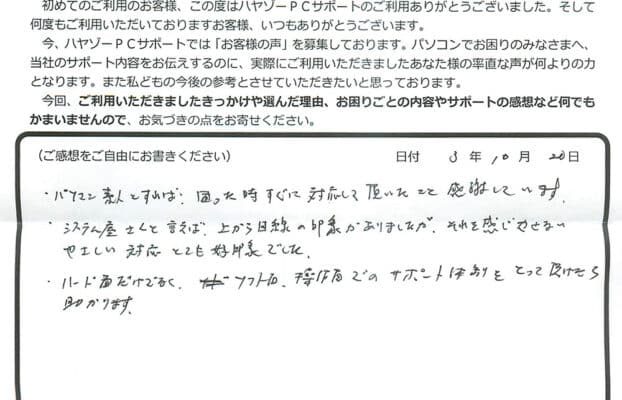 初めてのご利用のお客様、この度はハヤゾーPCサポートのご利用ありがとうございました。そして
何度もご利用いただいておりますお客様、いつもありがとうございます。
今、ハヤゾーPCサポートでは「お客様の声」を募集しております。パソコンでお困りのみなさまへ、
当社のサポート内容をお伝えするのに、実際にご利用いただきましたあなた様の率直な声が何よりの力
となります。また私どもの今後の参考とさせていただきたいと思っております。
今回、ご利用いただきましたきっかけや選んだ理由、お困りごとの内容やサポートの感想など何でも
かまいませんので、お気づきの点をお寄せください。
（ご感想をご自由にお書きください） 日付 3 年 10 月 20 日
・パソコン素人とすれば、困った時すぐに対応して頂いたこと感謝しています。
・システム屋さんと言えば、上から目線の印象がありましたが、それを感じさせない
やさしい対応とても好印象でした。
・ハード面だけでなく、ソフト面、操作面でのサポート体制をとって頂けたら
助かります。